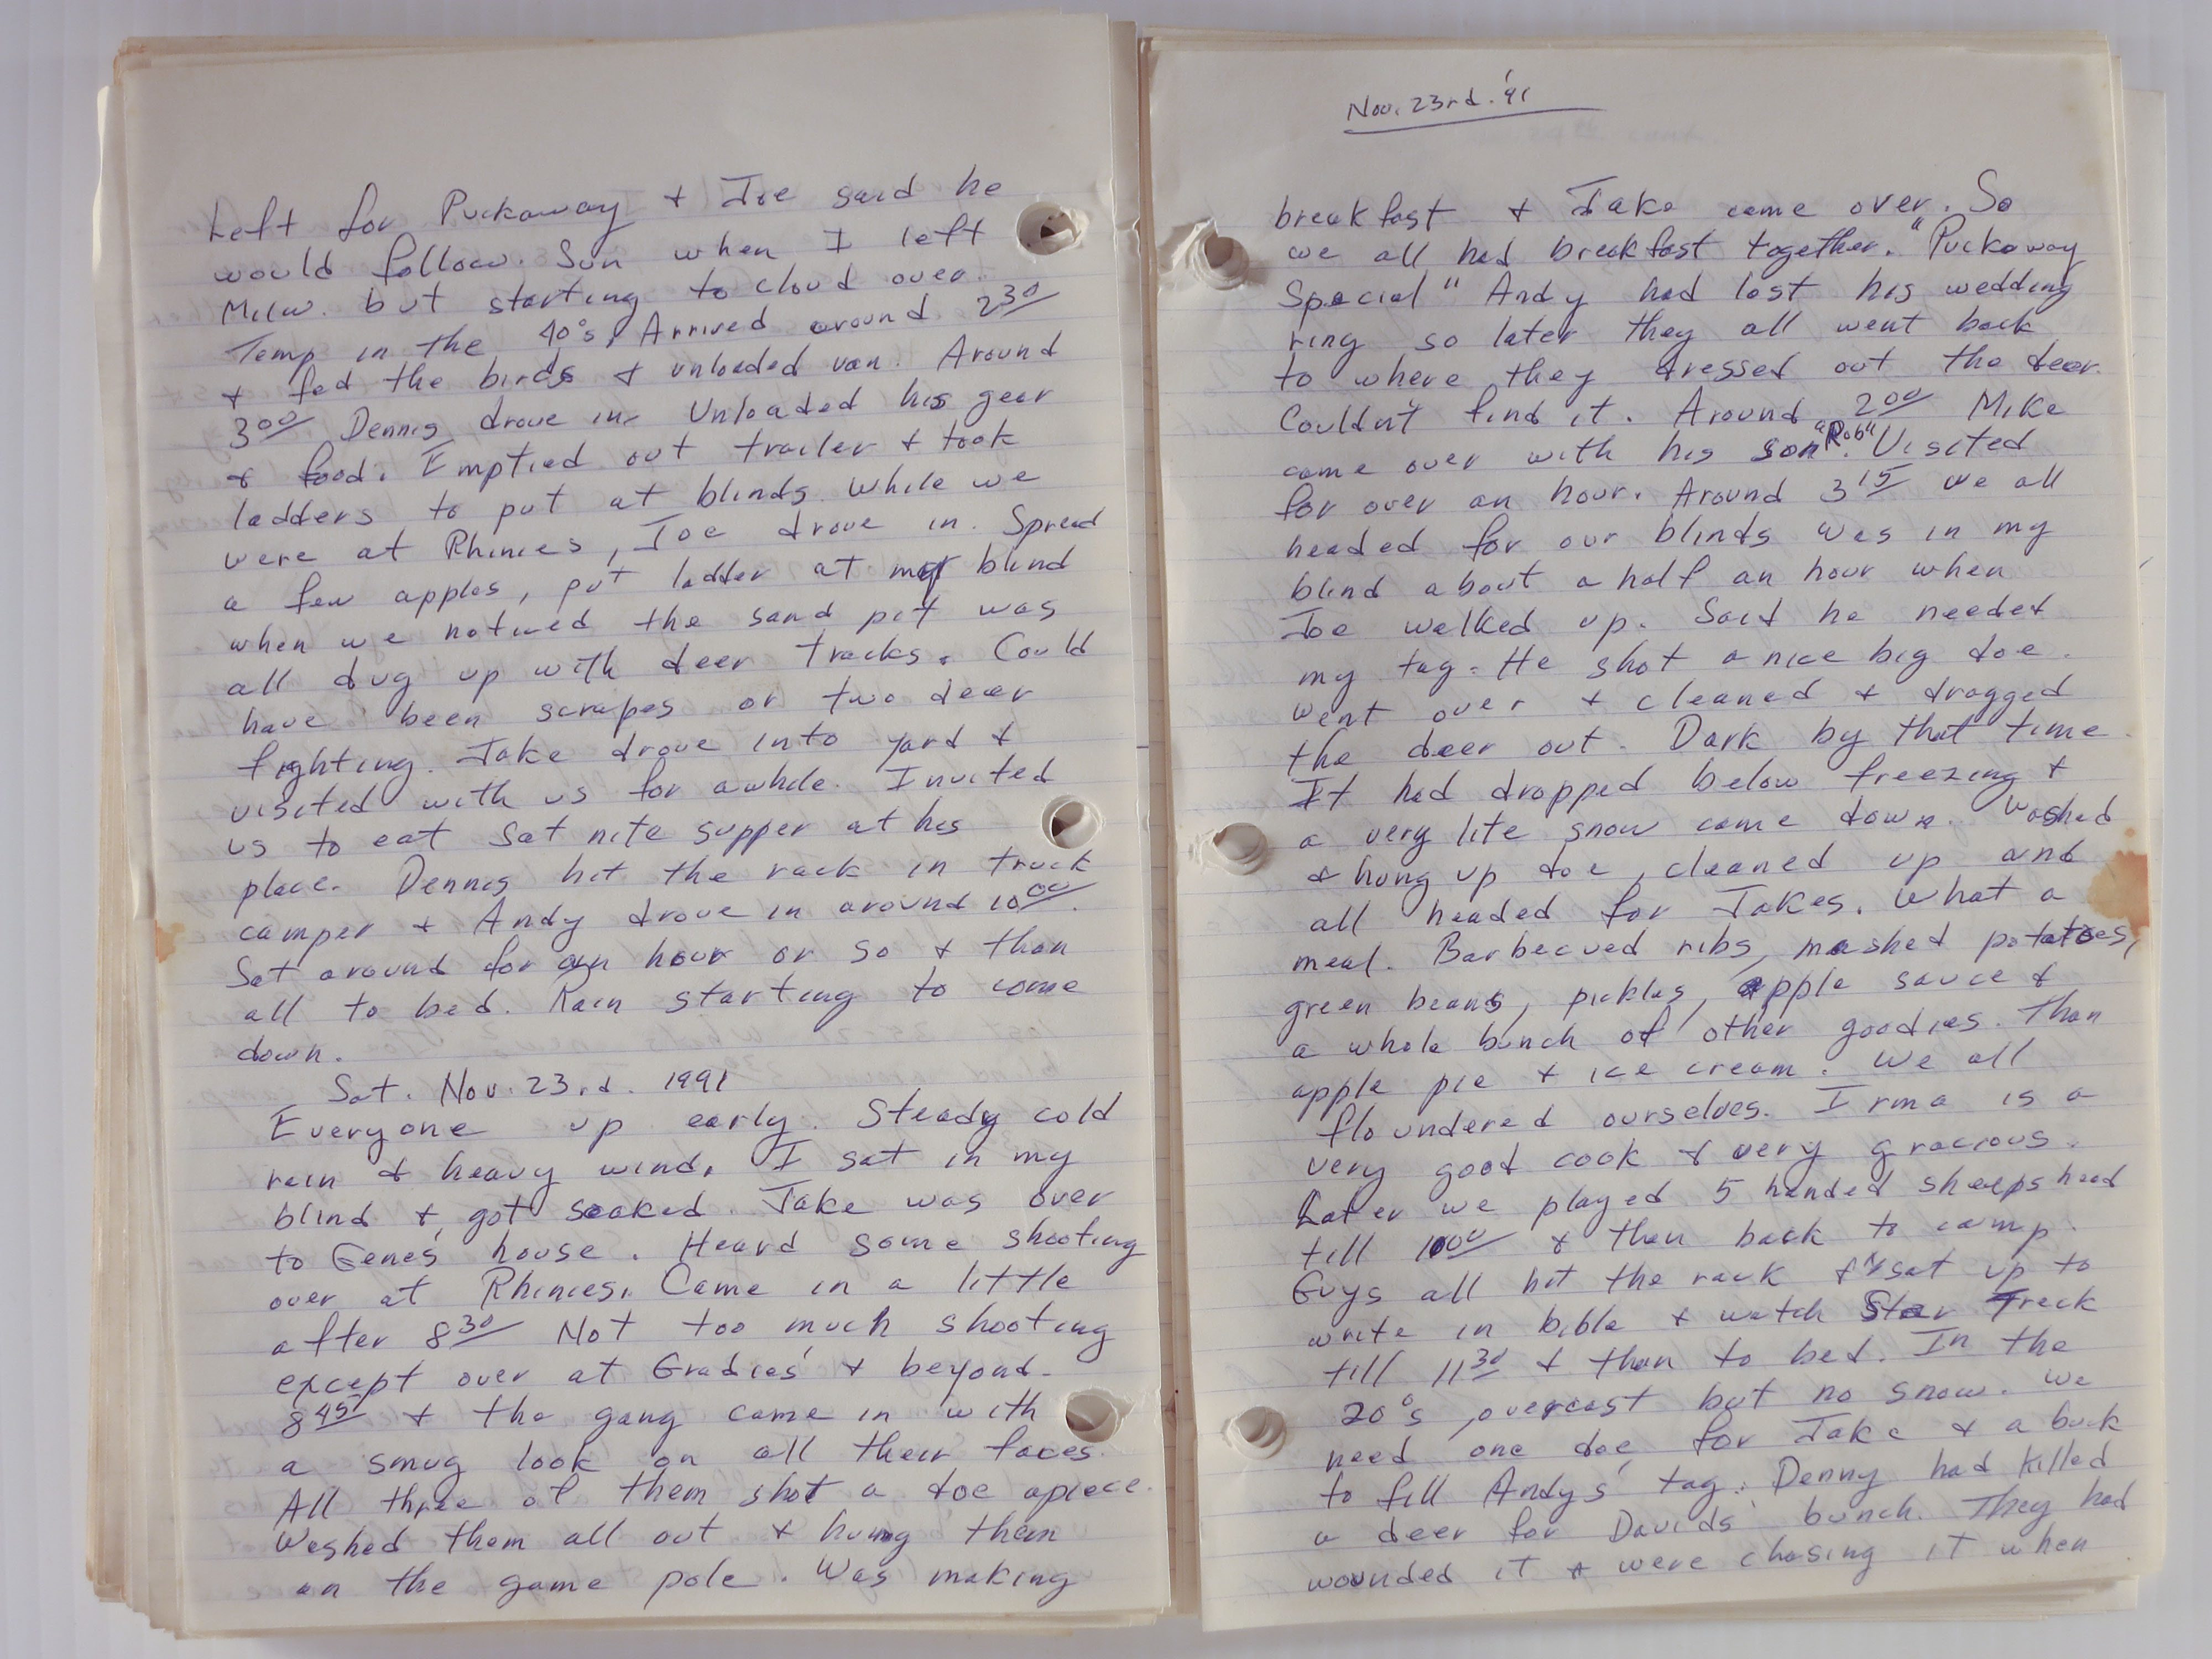 Left for Puckaway + Joe said he
would follow. Sun when I left
Milw. but starting to cloud over.
Temp in the 40°s. Arrived around 2³⁰
+ fed the birds + unloaded van. Around
3⁰⁰ Dennis drove in. Unloaded his gear
+ food. Emptied out trailer + took
ladders to put at blinds. While we
were at Rhinies, Joe drove in. Spread
a few apples, put ladder at my blind
when we noticed the sand pit was
all dug up with deer tracks. Could
have been scrapes or two deer
fighting. Jake drove into yard +
visited with us for awhile. Invited
us to eat Sat nite supper at his
place. Dennis hit the rack in truck
camper + Andy drove in around 10⁰⁰.
Sat around for an hour or so + then
all to bed. Rain starting to come
down.
Sat. Nov. 23rd. 1991
Everyone up early. Steady cold
rain + heavy wind. I sat in my
blind + got soaked. Jake was over
to Genes' house. Heard some shooting
over at Rhinies. Came in a little
after 8³⁰ Not too much shooting
except over at Gradies' + beyond.
8⁴⁵ + the gang came in with
a smug look on all their faces.
All three of them shot a doe apiece.
Washed them all out + hung them
on the game pole. Was making
Nov. 23rd. '91
breakfast + Jake came over. So
we all had breakfast together. "Puckaway
Special" Andy had lost his wedding
ring so later they all went back
to where they dressed out the deer.
Couldn't find it. Around 2⁰⁰ Mike
came over with his son "Rob". Visited
for over an hour. Around 3¹⁵ we all
headed for our blinds was in my
blind about a half an hour when
Joe walked up. Said he needed
my tag. He shot a nice big doe.
Went over + cleaned + dragged
the deer out. Dark by that time.
It had dropped below freezing +
a very lite snow came down. Washed
+ hung up doe, cleaned up and
all headed for Jakes. What a
meal. Barbecued ribs, mashed potatoes,
green beans, pickles, apple sauce +
a whole bunch of other goodies. Then
apple pie + ice cream. We all
floundered ourselves. Irma is a
very good cook + very gracious.
Later we played 5 handed sheepshead
till 10⁰⁰ + then back to camp.
Guys all hit the rack + I sat up to
write in bible + watch Star Treck
till 11³⁰ + then to bed. In the
20°s, overcast but no snow. We
need one doe for Jake + a buck
to fill Andys' tag. Denny had killed
a deer for Davids' bunch. They had
wounded it + were chasing it when